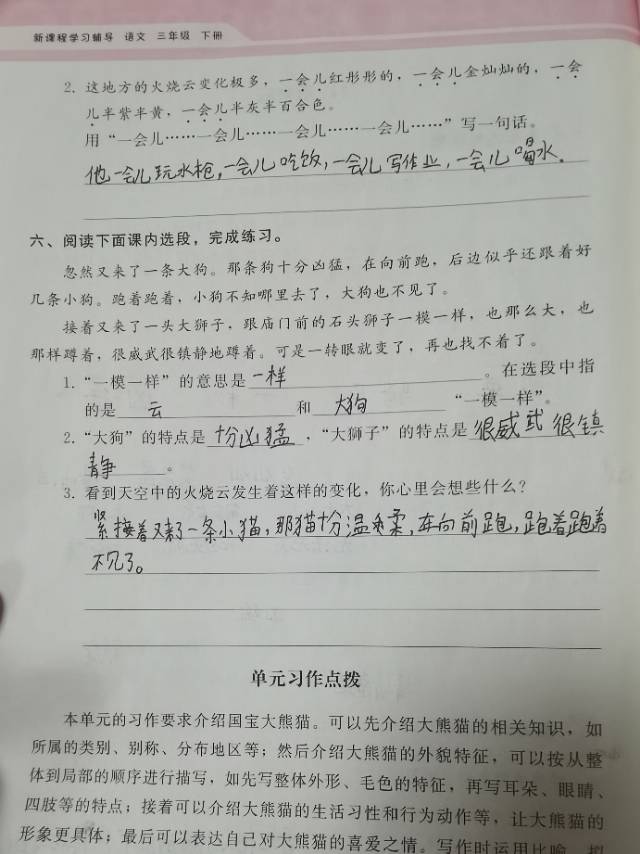 新课程学习辅导 语文 三年级 下册
2. 这地方的火烧云变化极多，一会儿红彤彤的，一会儿金灿灿的，一会
儿半紫半黄，一会儿半灰半百合色。
用“一会儿……一会儿……一会儿……一会儿……”写一句话。
他一会儿玩水枪，一会儿吃饭，一会儿写作业，一会儿喝水.
六、阅读下面课内选段，完成练习。
忽然又来了一条大狗。那条狗十分凶猛，在向前跑，后边似乎还跟着好
几条小狗。跑着跑着，小狗不知哪里去了，大狗也不见了。
接着又来了一头大狮子，跟庙门前的石头狮子一模一样，也那么大，也
那样蹲着，很威武很镇静地蹲着。可是一转眼就变了，再也找不着了。
1. “一模一样”的意思是 一样 。在选段中指
的是 云 和 大狗 “一模一样”。
2. “大狗”的特点是 十分凶猛 ，“大狮子”的特点是 很威武 很镇
静 。
3. 看到天空中的火烧云发生着这样的变化，你心里会想些什么？
紧接着又来了一条小猫，那猫十分温柔，在向前跑，跑着跑着
不见了。
单元习作点拨
本单元的习作要求介绍国宝大熊猫。可以先介绍大熊猫的相关知识，如
所属的类别、别称、分布地区等；然后介绍大熊猫的外貌特征，可以按从整
体到局部的顺序进行描写，如先写整体外形、毛色的特征，再写耳朵、眼睛、
四肢等的特点；接着可以介绍大熊猫的生活习性和行为动作等，让大熊猫的
形象更具体；最后可以表达自己对大熊猫的喜爱之情。写作时运用比喻、拟